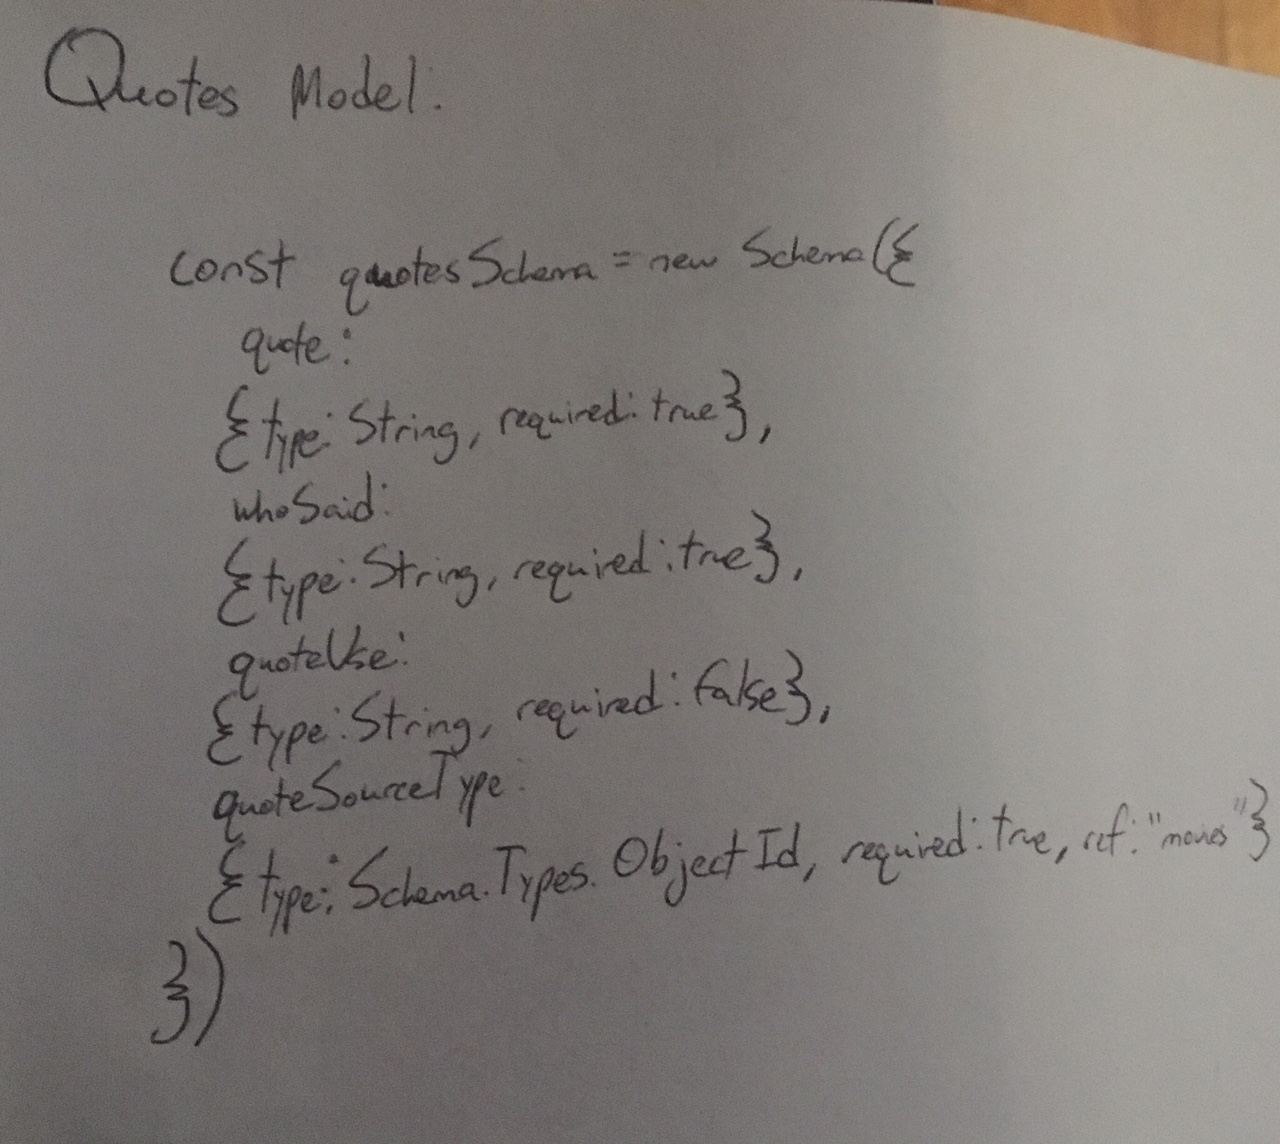 Quotes Model:
const quotesSchema = new Schema({
quote:
{type: String, required: true},
whoSaid:
{type: String, required: true},
quoteUse:
{type: String, required: false},
quoteSourceType:
{type: Schema.Types.ObjectId, required: true, ref: "movies"}
})